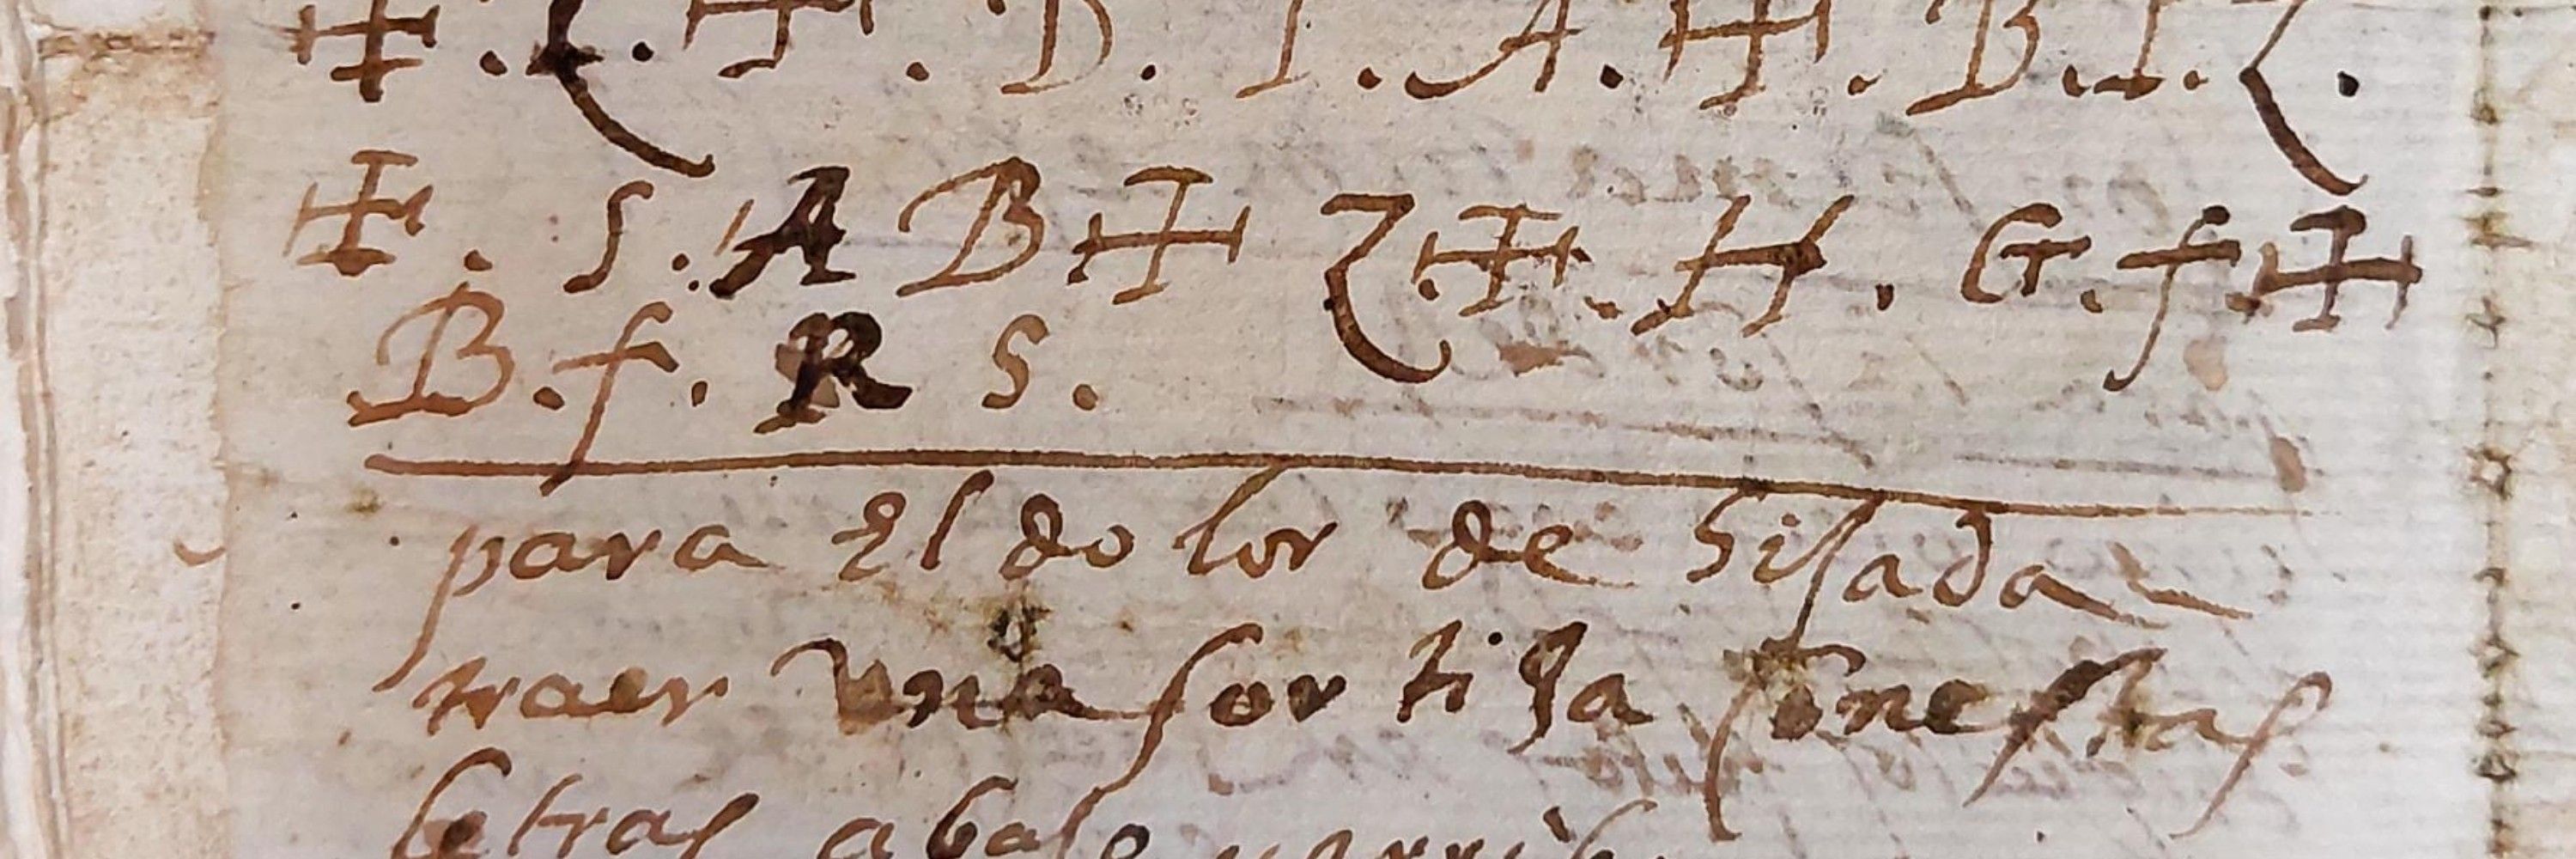 ✠ . Z . ✠ . D . I . A . ✠ . B . I . Z .
✠ . S . A B ✠ Z . ✠ . H . G . f . ✠
B . f . R S .
para El dolor de hijada
traer vna sortija conestas
letras abajo y arriba